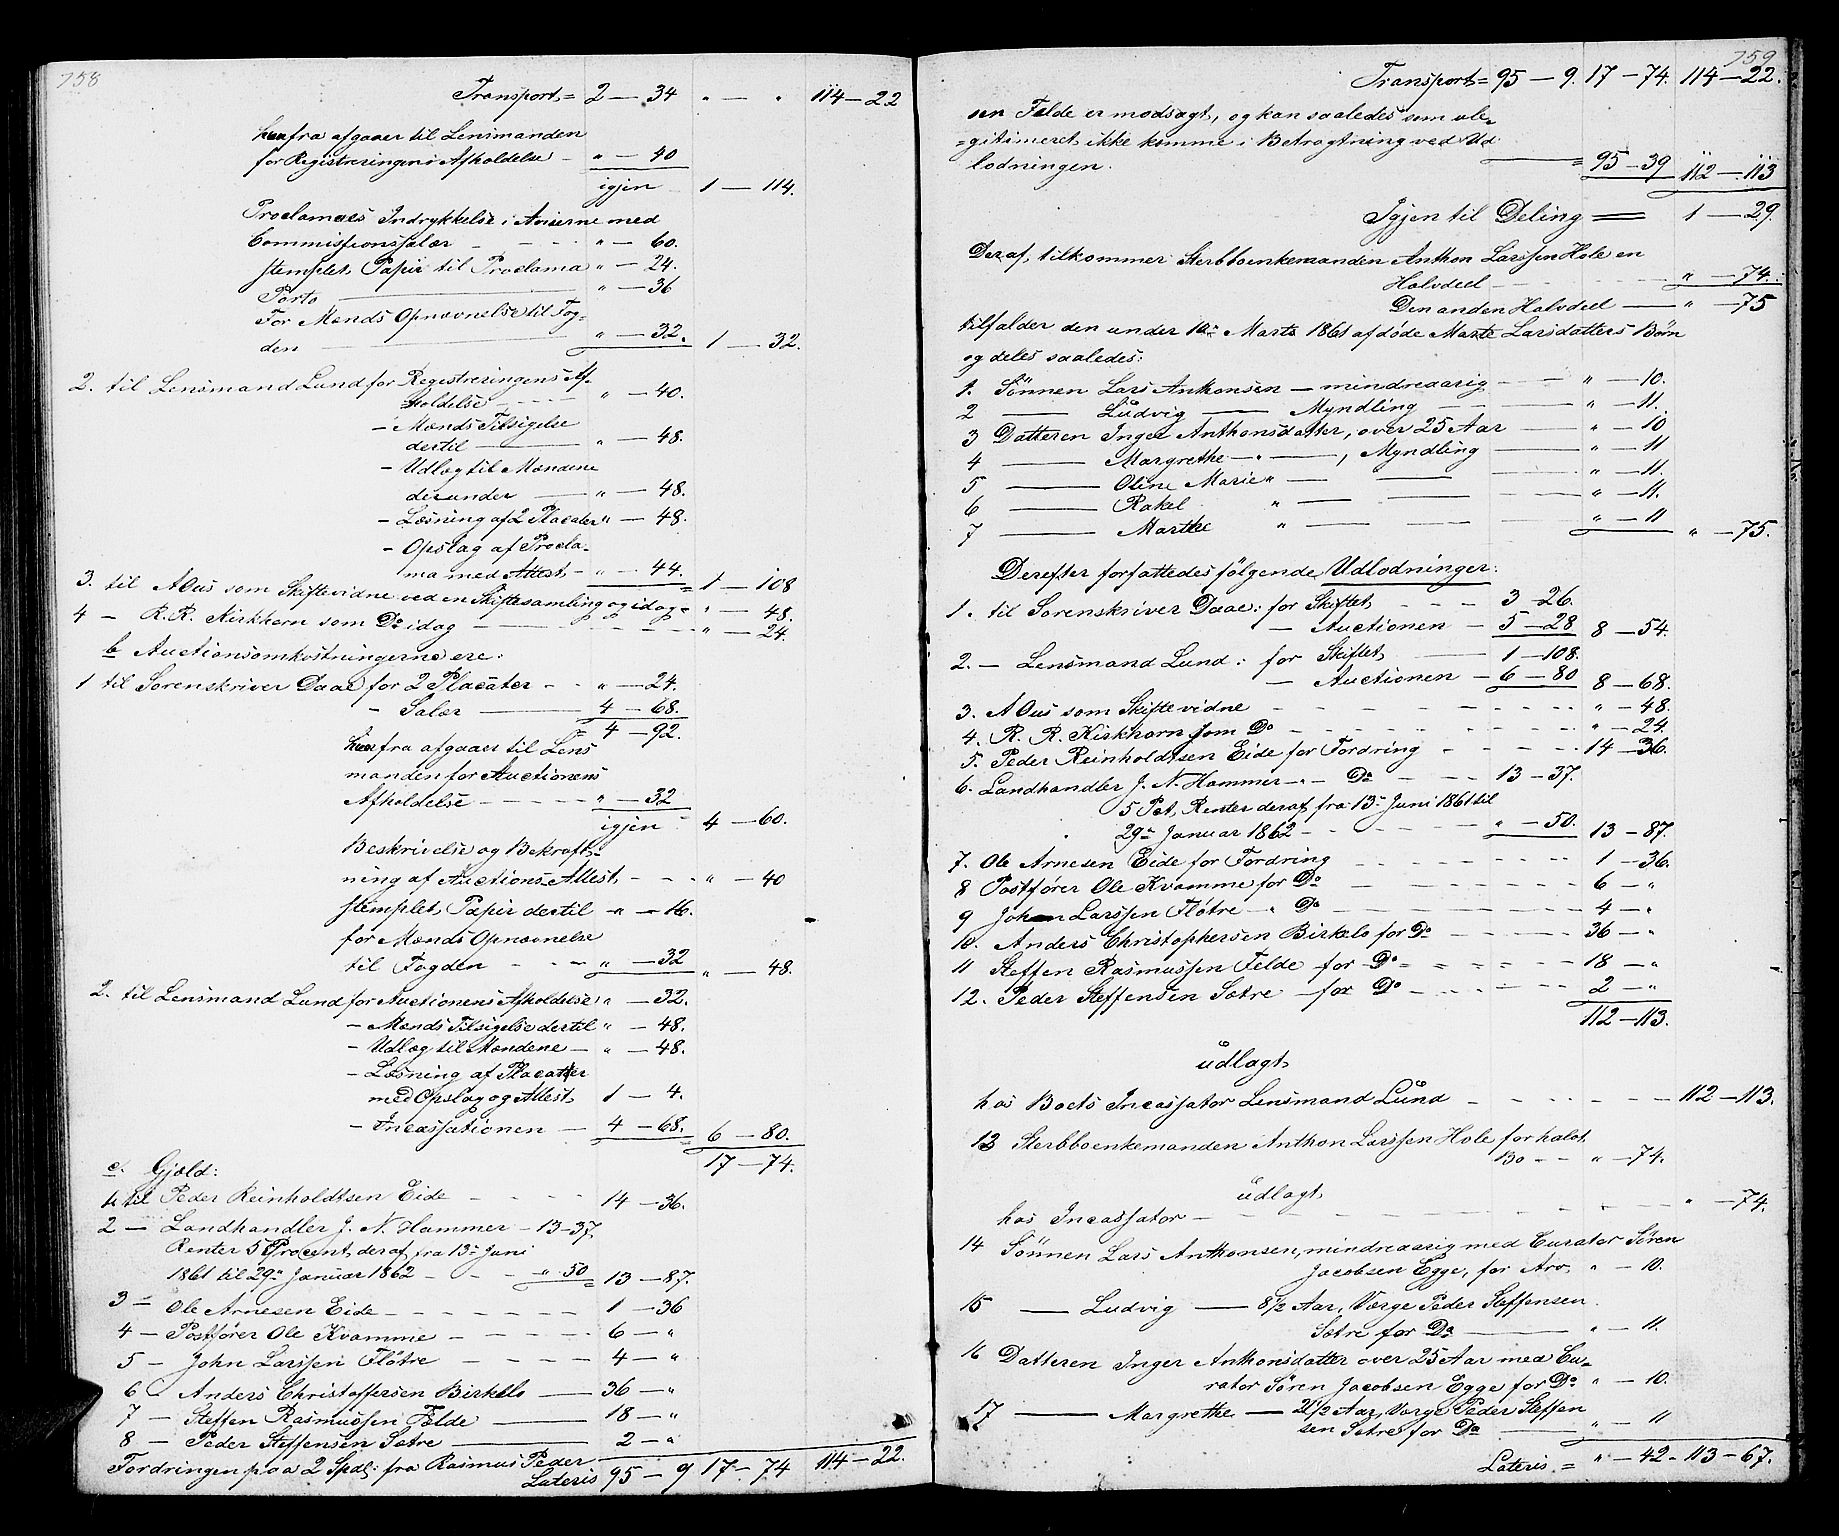 758
Transport = 2 — 34 " — " 114 — 22
herfra afgaaer til Lensmanden
for Registreringens Afholdelse — " — 40
igjen 1 — 114.
Proclamaes Indrykkelse i Aviserne med
Commissionssalær — — — " — 60.
stemplet Papir til Proclama " — 24.
Porto — " — 36
For Mænds Opnævnelse til Fog-
den — " — 32. 1 — 32.
2. til Lensmand Lund for Registreringens Af-
holdelse — — — " — 40.
- Mænds Tilsigelse
dertil — " — 48.
- Udlæg til Mændene
derunder — " — 48.
- Læsning af 2 Placater " — 48.
- Opslag af Procla-
ma med Attest — " — 44. 1 — 108
3. til A Ous som Skiftevidne ved en Skiftesamling og idag " — 48.
4 — R. R. Kirkhorn som Do idag — — — " — 24.
b Auctionsomkostningerne ere:
1 til Sorenskriver Daae for 2 Placater — " — 24.
- Salær — 4 — 68.
4 — 92.
herfra afgaaer til Lens
manden for Auctionens
Afholdelse — — — " — 32
igjen 4 — 60.
Beskrivelse og Bekræft-
ning af Auctions Attest — — — " — 40
stemplet Papir dertil " — 16.
for Mænds Opnævnelse
til Fogden — — " — 32 " — 48.
2. til Lensmand Lund for Auctionens Afholdelse " — 32.
- Mænds Tilsigelse dertil " — 48.
- Udlæg til Mændene — " — 48.
- Læsning af Placater
med Opslag og Attest 1 — 4.
- Incassationen — 4 — 68. 6 — 80.
17 — 74.
c. Gjæld:
1. til Peder Reinholdtsen Eide — — — 14 — 36.
2 — Landhandler J. N. Hammer — 13 — 37.
Renter 5 Procent deraf fra 13de Juni
1861 til 29de Januar 1862 — — " 50 13 — 87.
3 — Ole Arnesen Eide — — — 1 — 36
4 — Postfører Ole Kvamme — — — 6 — "
5 — John Larssen Fløtre — — — 4 — "
6 Anders Christoffersen Birkelo — 36 — "
7 — Steffen Rasmussen Felde — 18 — "
8 — Peder Steffensen Sætre — 2 — "
Fordringen paa 2 Spdl: fra Rasmus Peder
Lateris 95 — 9 17 — 74 114 — 22.
759
Transport = 95 — 9. 17 — 74. 114 — 22.
sen Felde er modsagt, og kan saaledes som ule-
=gitimeret ikke komme i Betragtning ved Ud
lodningen. = 95 — 39 112 — 113
Igjen til Deling = 1 — 29.
Deraf tilkommer Sterbboenkemanden Anthon Larssen Hole en
Halvdeel — — — " — 74.
Den anden Halvdeel — " — 75
tilfalder den under 10de Marts 1861 afdøde Marte Larsdatters Børn
og deles saaledes:
1. Sønnen Lars Anthonsen — mindreaarig — — " — 10.
2 — Ludvig — Myndling — — " — 11.
3 Datteren Inger Anthonsdatter, over 25 Aar — " — 10
4 — Margrethe — " —, Myndling — " — 11
5 — Oline Marie " — — — " — 11.
6 — Rakel " — — — " — 11.
7 — Marthe " — — — " — 11 " — 75.
Derefter forfattedes følgende Udlodninger:
1. til Sorenskriver Daae: for Skiftet — — — 3 — 26.
— Auctionen — 5 — 28 8 — 54.
2. — Lensmand Lund: for Skiftet — 1 — 108.
— Auctionen — 6 — 80 8 — 68.
3. A Ous som Skiftevidne — — — " — 48.
4. R. R. Kirkhorn som Do — — — " — 24.
5. Peder Reinholdtsen Eide for Fordring — — — 14 — 36.
6. Landhandler J. N. Hammer — " — Do — — 13 — 37.
5 Pct. Renter deraf fra 13de Juni 1861 til
29de Januar 1862 — — — " — 50. 13 — 87.
7. Ole Arnesen Eide for Fordring — — — 1 — 36.
8 Postfører Ole Kvamme for Do — — — 6 — "
9 John Larssen Fløtre — " Do — — — 4 — "
10. Anders Christophersen Birkelo for Do — — — 36 — "
11 Steffen Rasmussen Felde for Do — — — 18 — "
12. Peder Steffensen Sætre — for Do — — — 2 — "
112 — 113.
udlagt
hos Boets Incassator Lensmand Lund — — — 112 — 113.
13 Sterbboenkemanden Anthon Larssen Hole for halvt
Bo — — " — 74.
udlagt
hos Incassator — — — " — 74.
14 Sønnen Lars Anthonsen, mindreaarig med Curator Søren
Jacobsen Egge, for Arv. " — 10.
15 — Ludvig — 8 1/2 Aar, Værge Peder Steffensen
Sætre for Do — " — 11.
16 Datteren Inger Anthonsdatter over 25 Aar med Cu-
rator Søren Jacobsen Egge for Do " — 10.
17 — Margrethe — 21 1/2 Aar, Værge Peder Steffen
sen Sætre for Do — " — 11
Lateris = " — 42 — 113 — 67.